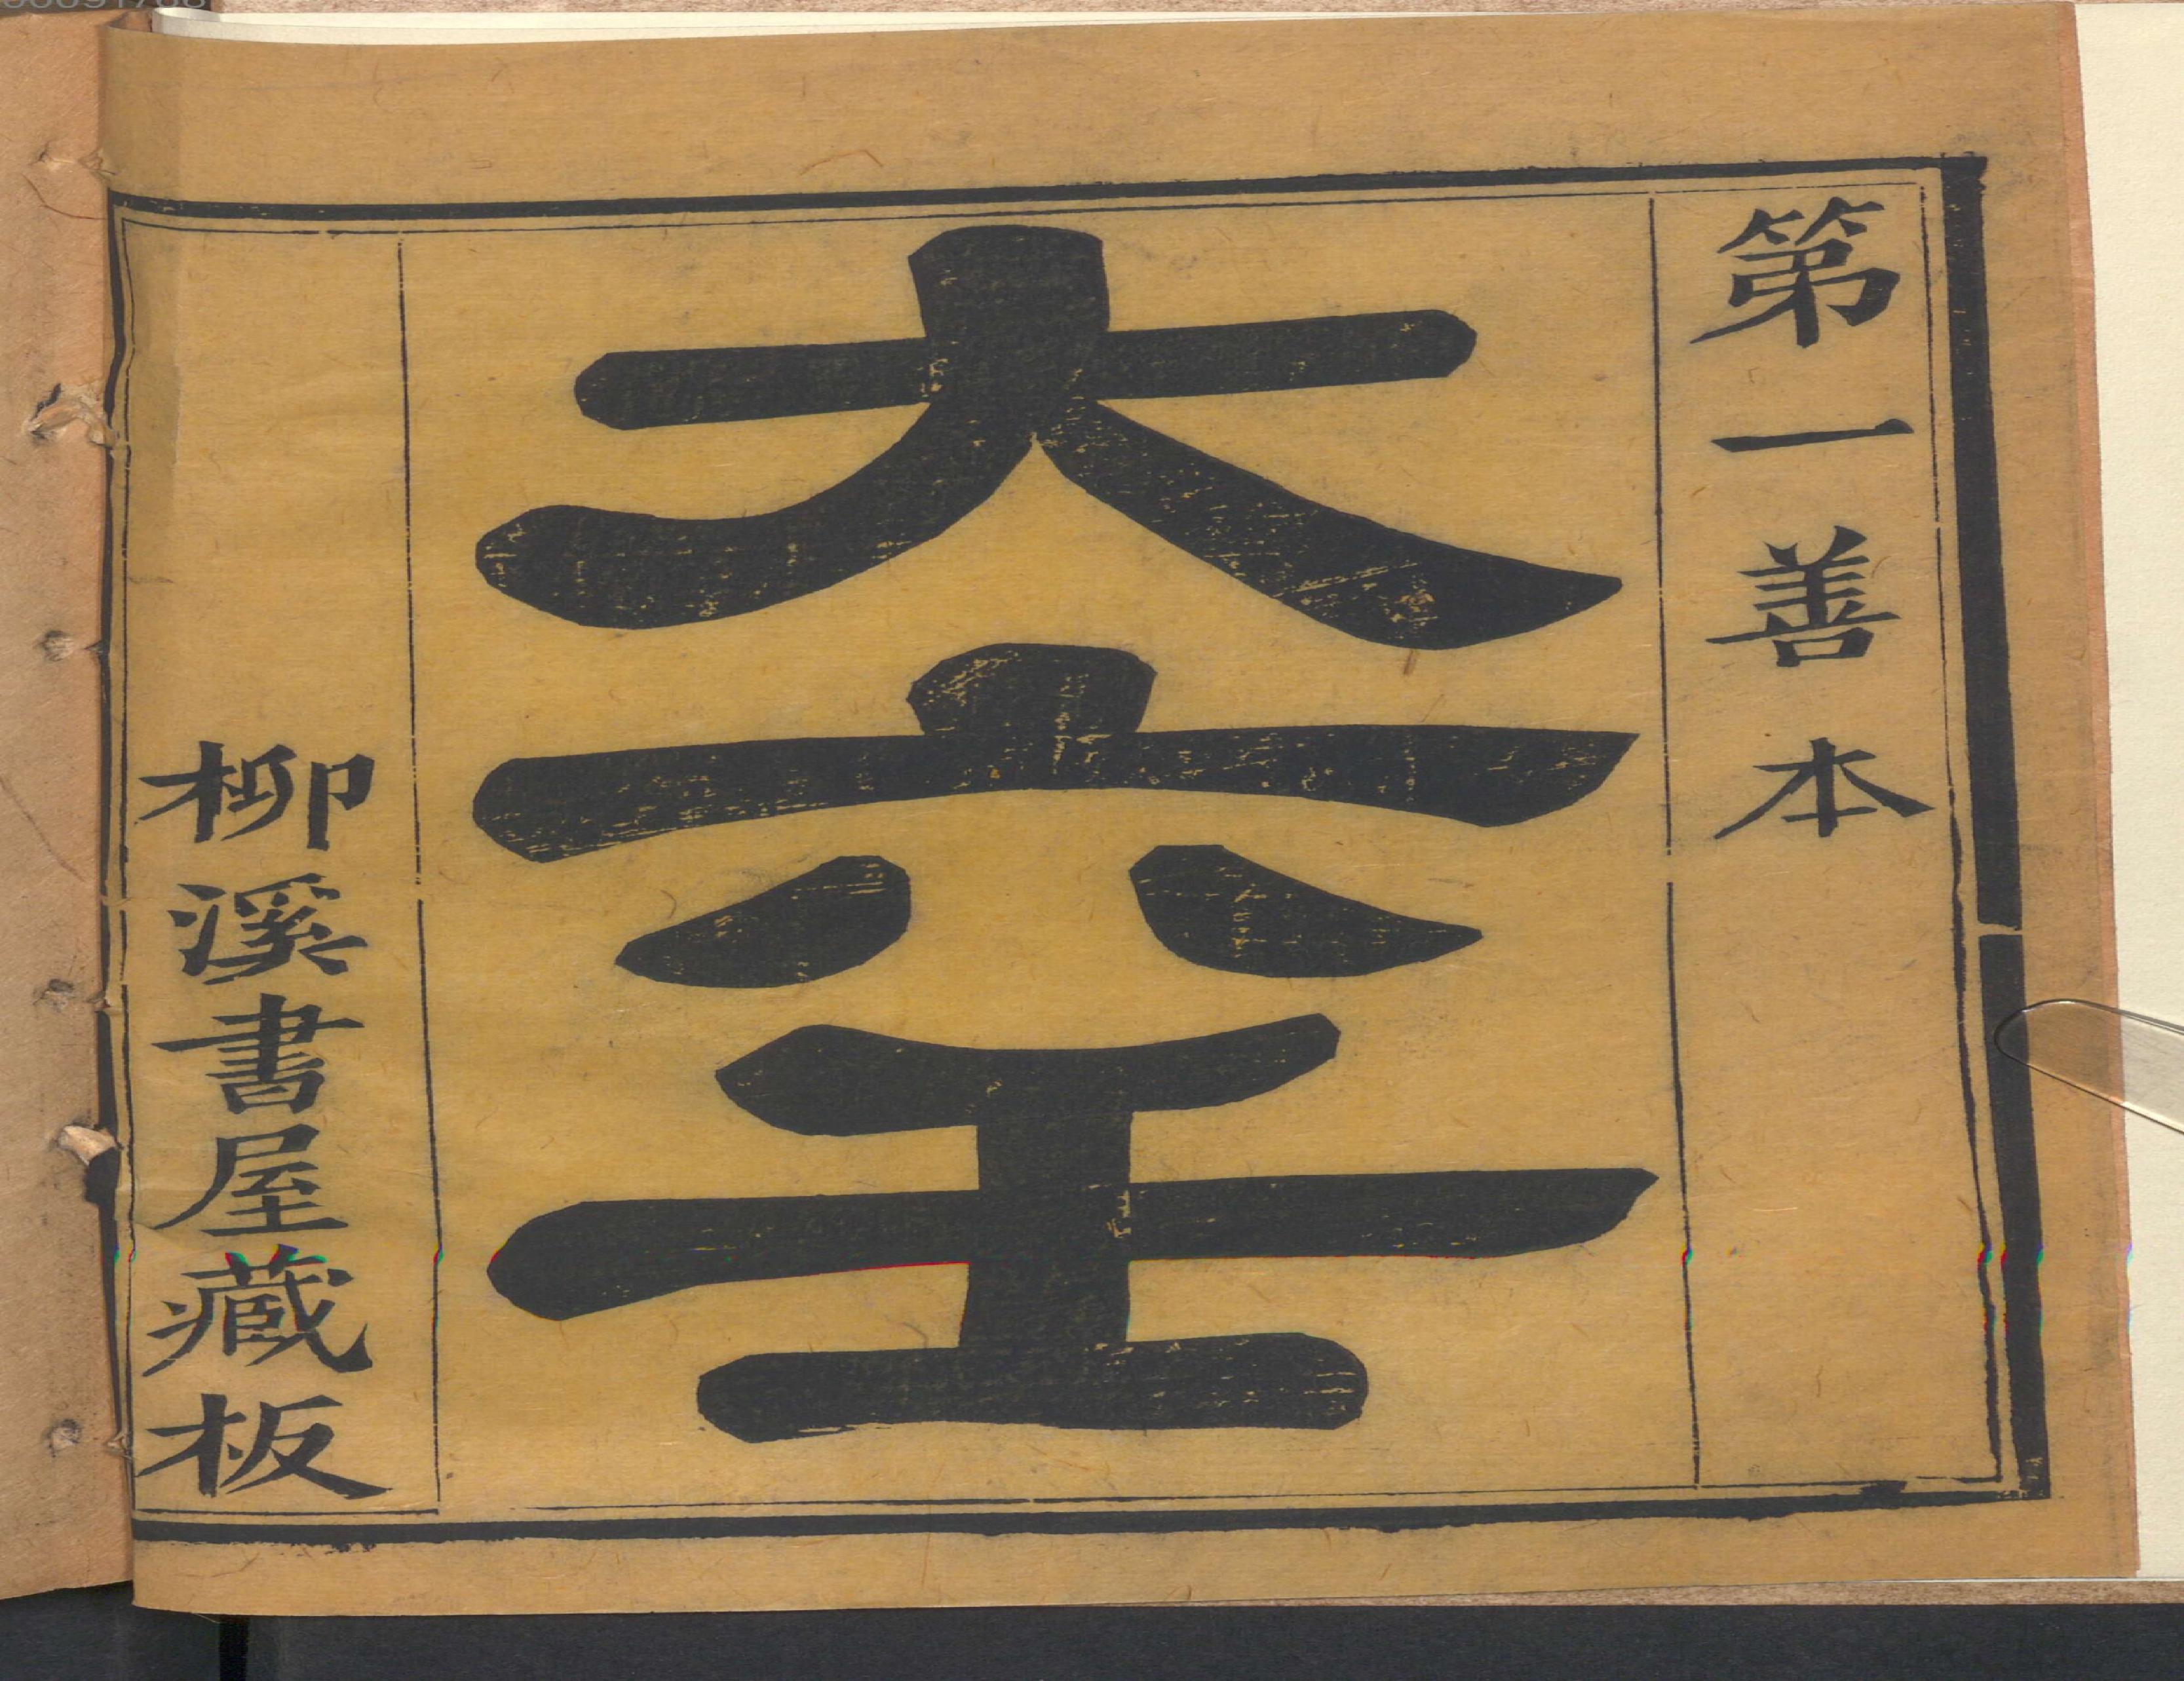 第一善本
大六壬
柳溪書屋藏板